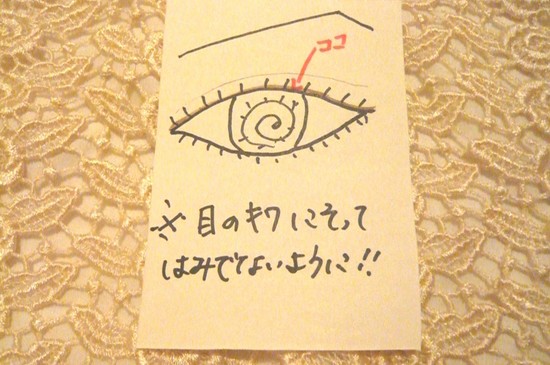 ココ
※目のキワにそって
はみでてないように!!